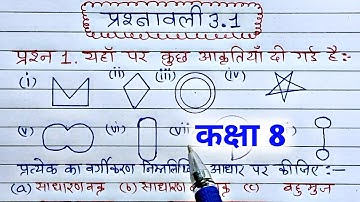 प्रश्नावली 3.1
प्रश्न 1. यहाँ पर कुछ आकृतियाँ दी गई हैं:-
(i) (ii) (iii) (iv)
(v) (vi) (vii) कक्षा 8
प्रत्येक का वर्गीकरण निम्नलिखित आधार पर कीजिए :—
(a) साधारण वक्र (b) साधारण वक्र (c) बहुभुज